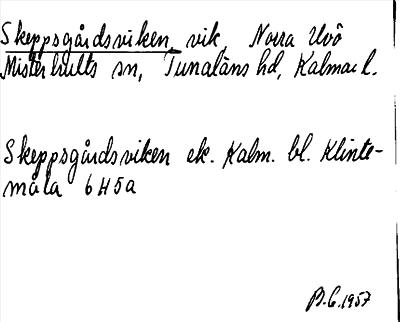 Skeppsgårdsviken vik, Norra Uvö
Misterhults sn, Tunaläns hd, Kalmar l.
Skeppsgårdsviken ek. Kalm. bl. Klinte-
måla 6H5a
B.G. 1957